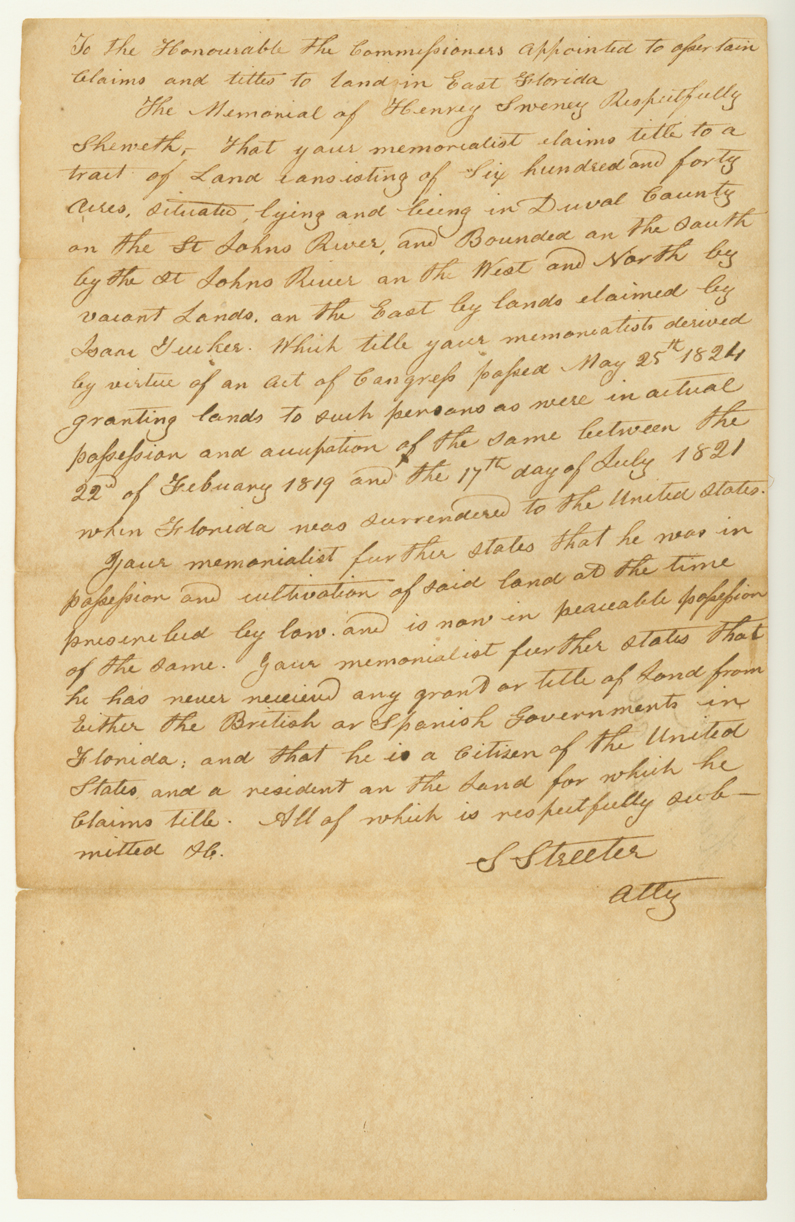 To the Honourable the Commissioners appointed to assertain
Claims and titles to land in East Florida
The Memorial of Henrey Sweney Respectfully
Sheweth, That your memorialist claims title to a
tract of Land consisting of Six hundred and forty
acres, situated, lying and being in Duval County
on the St Johns River, and Bounded on the South
by the St Johns River on the West and North by
vacant Lands, on the East by lands claimed by
Isaac Tucker. Which title your memorialists derived
by virtue of an act of Congress passed May 25th 1824
granting lands to such persons as were in actual
possession and accupation of the same between the
22nd of Febuary 1819 and the 17th day of July 1821
when Florida was surrendered to the United States.
Your memorialist further states that he was in
possession and cultivation of said land at the time
prescribed by law. and is now in peaceable possession
of the same. Your memorialist further states that
he has never received any grant or title of Land from
Either the British or Spanish Governments in
Florida; and that he is a Citizen of the United
States and a resident on the Land for which he
Claims title. All of which is respectfully sub-
mitted &c.
S Streeter
Atty